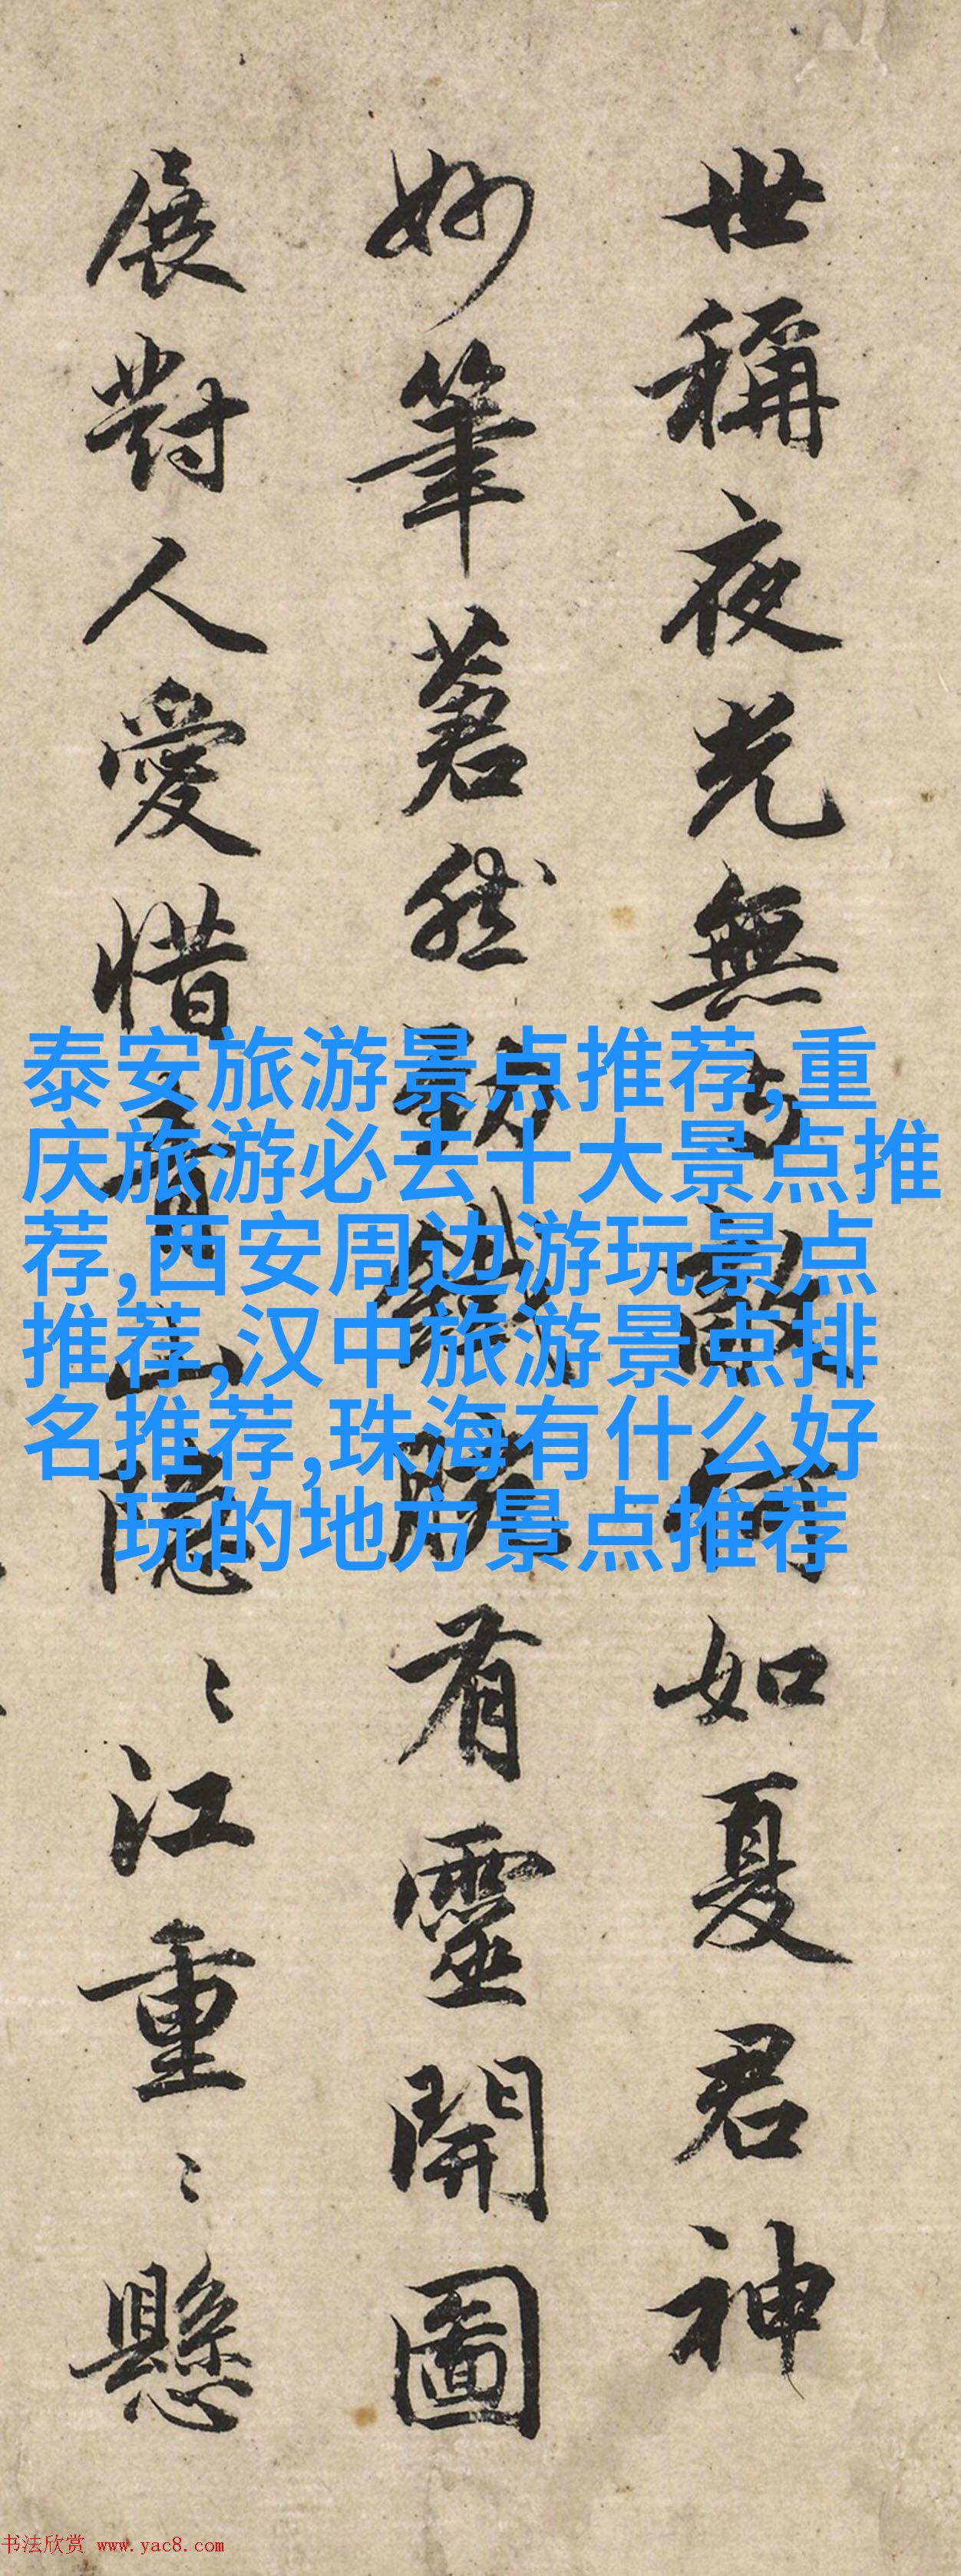 世稱夜光無
如夏君神
妙筆著然
有靈開圖
展對人愛惜
江重〻懸
泰安旅游景点推荐,重
庆旅游必去十大景点推
荐,西安周边游玩景点
推荐,汉中旅游景点排
名推荐,珠海有什么好
玩的地方景点推荐
书法欣赏 www.yac8.com